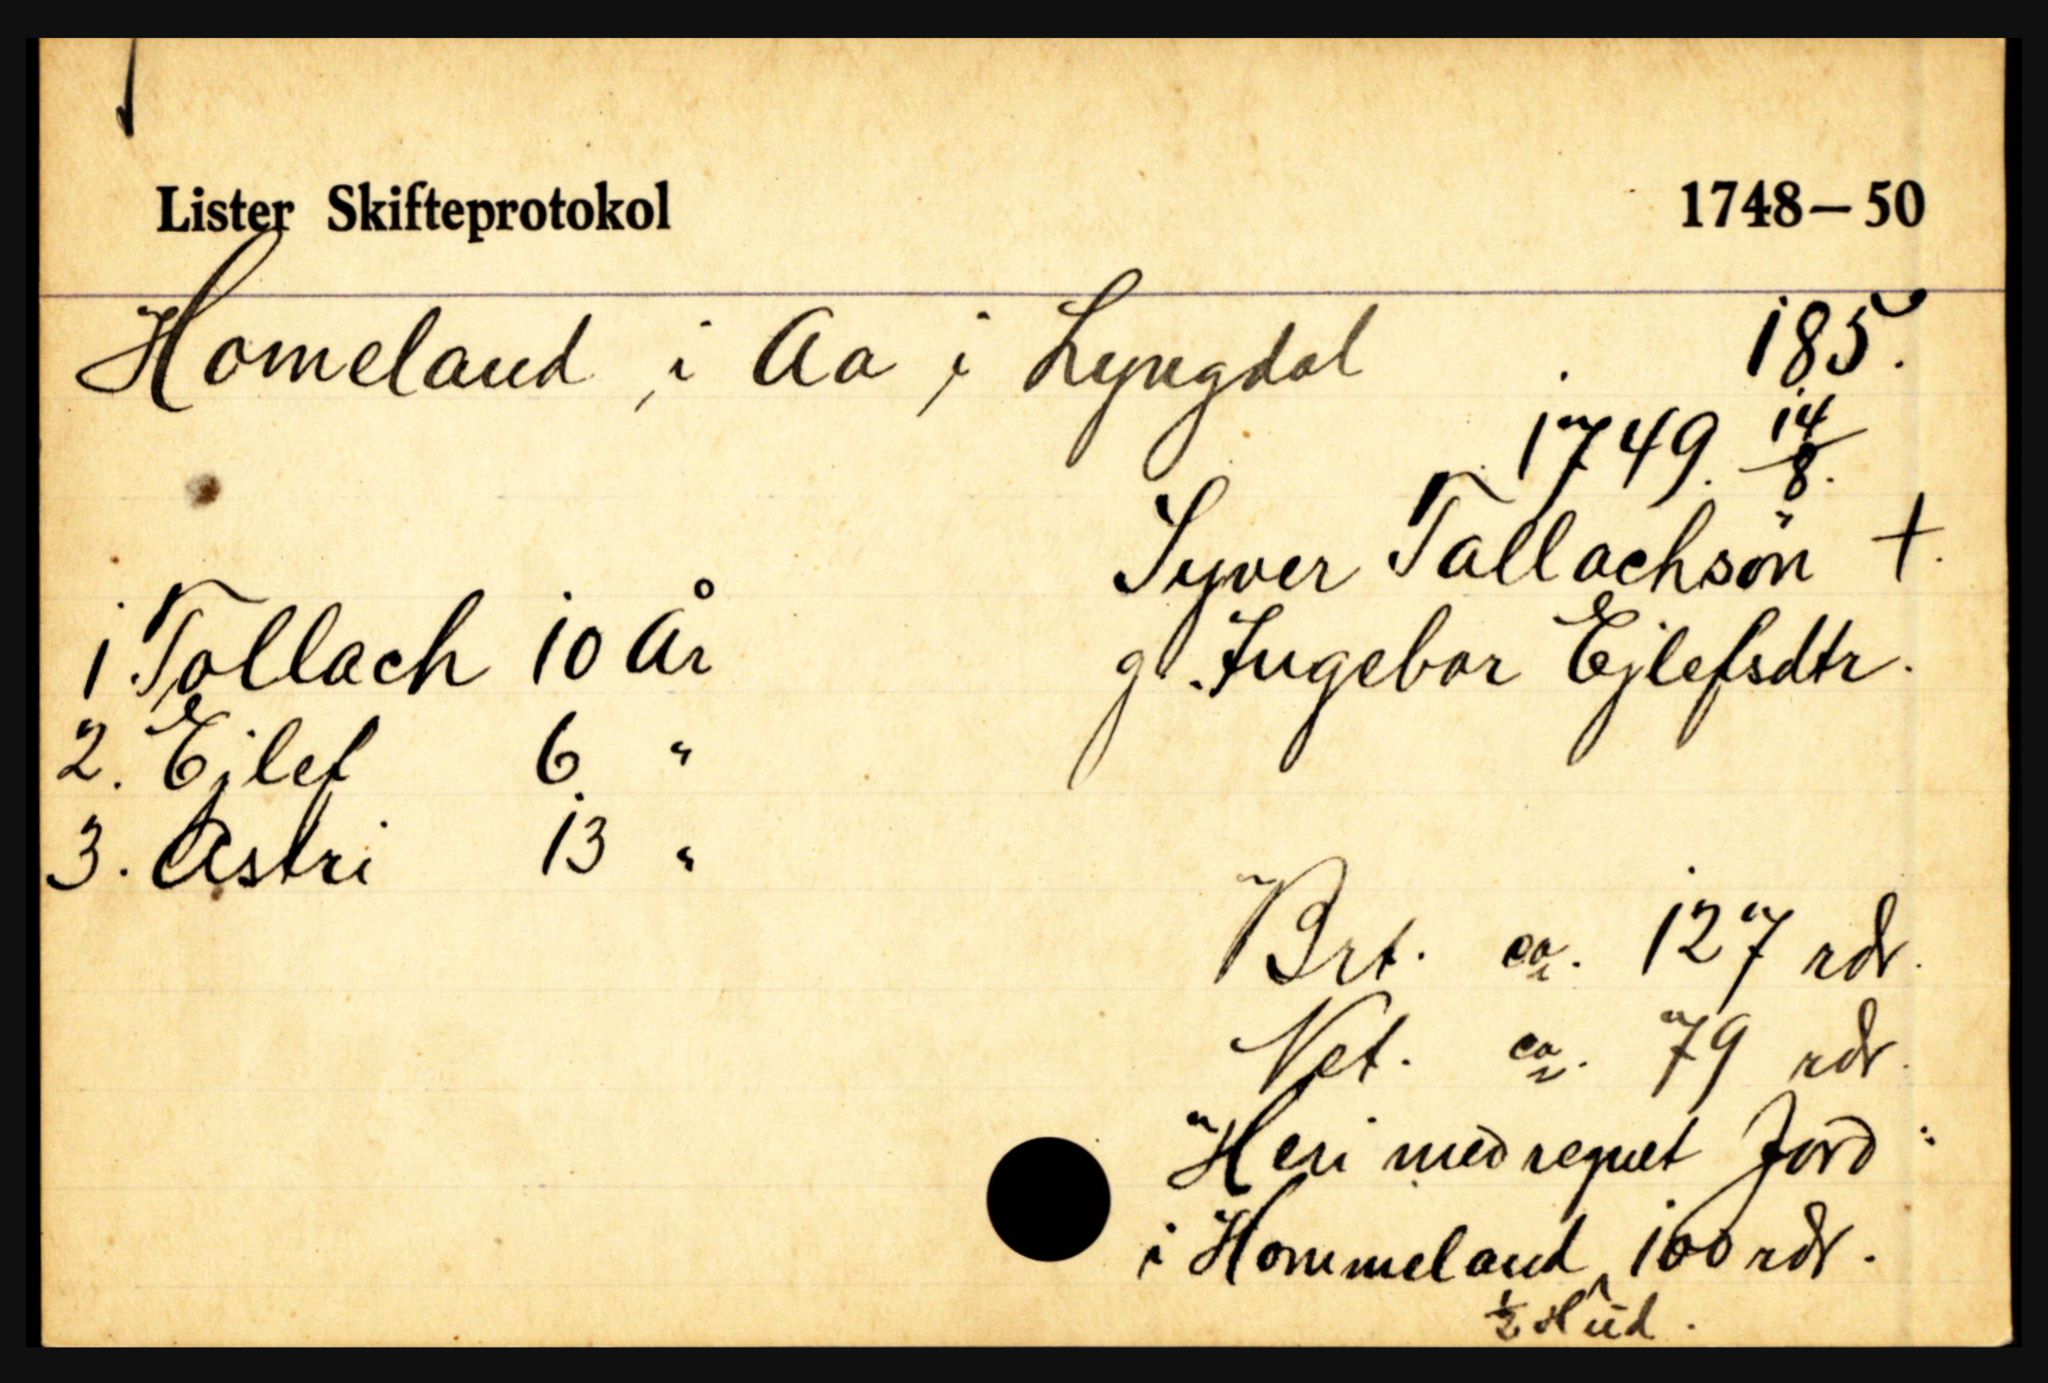 Lister Skifteprotokol 1748–50
Homeland i Aa i Lyngdal 185.
1749. 14/8.
Syver Tallachsön +.
g. Ingebor Ejlefsdtr.
1 Tollach 10 År
2. Ejlef 6 "
3. Astri 13 "
Brt. ca. 127 rdr.
Net. ca. 79 rdr.
Heri medregnet Jord
i Hommeland ^ 100 rdr.
½ Hud.